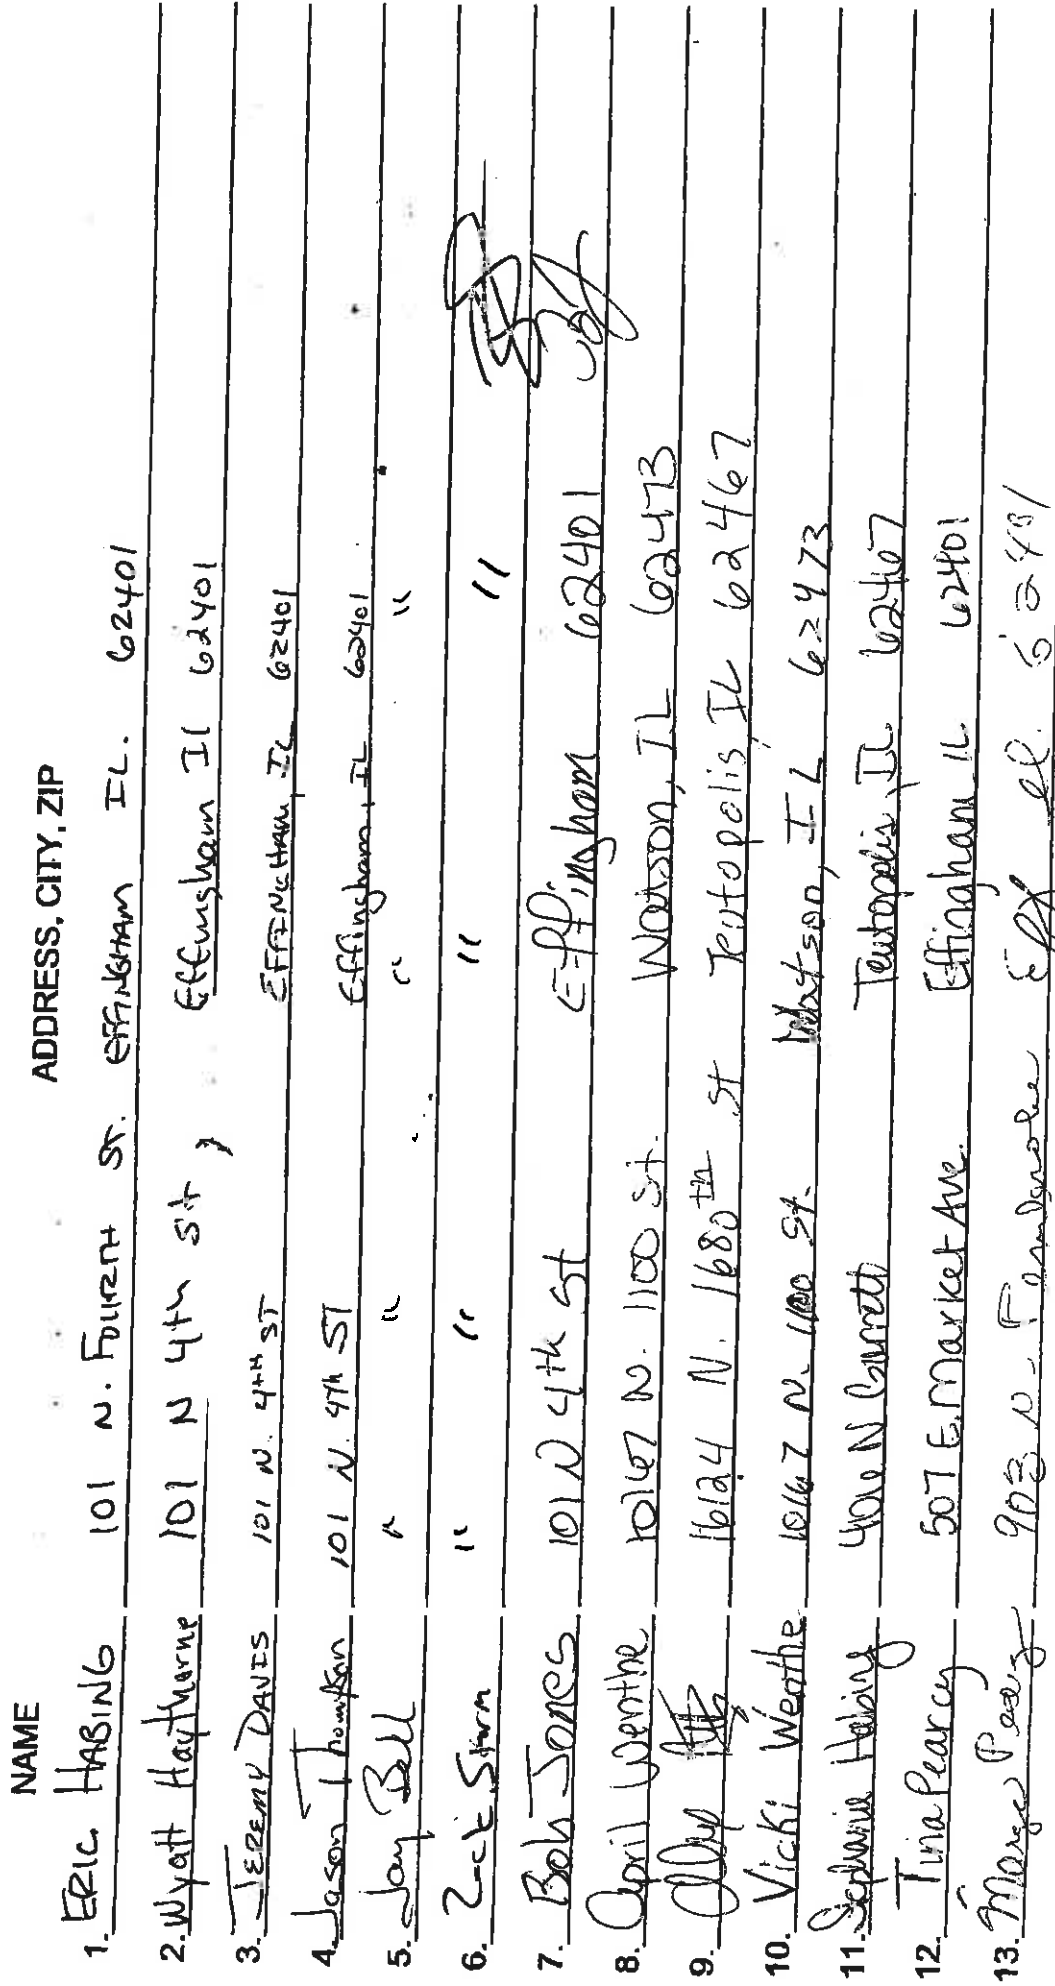 NAME ADDRESS, CITY, ZIP
1. ERIC HABING 101 N. FOURTH ST. EFFINGHAM IL. 62401
2. Wyatt Haythorne 101 N 4th st, Effingham Il 62401
3. JEREMY DAVIS 101 N. 4TH ST EFFINGHAM, IL 62401
4. Jason Thompson 101 N. 4th ST Effingham, IL 62401
5. Jay Bell " " " "
6. Zack Storm " " " "
7. Bob Jones 101 N 4th St Effingham 62401
8. April Wenthe 10167 N. 1100 St. Watson, IL 62473
9. 16124 N. 1680th St Teutopolis, IL 62467
10. Vicki Wenthe 10167 N. 1100 St. Watson, IL 62473
11. Stephanie Habing 406 N Garrett Teutopolis, IL 62467
12. Tina Pearcy 507 E. Market Ave. Effingham, IL 62401
13. Marge 903 N. Eff Il. 62401